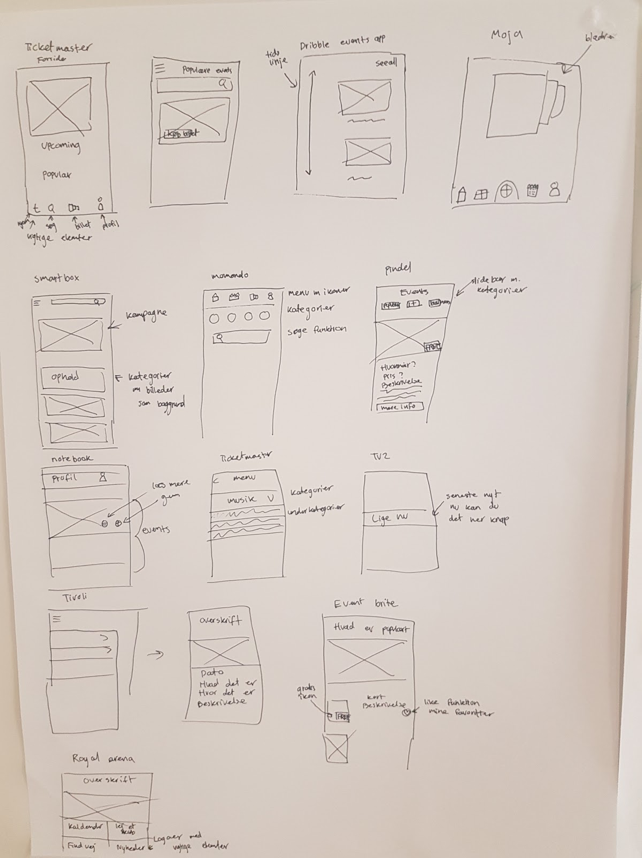 Ticketmaster
Forside
Upcoming
popular
søg
billet
profil
vigtige elementer
populære events
køb billet
Dribble events app
tids
linje
see all
Moja
Smartbox
kampagne
ophold
kategorier
m billeder
som baggrund
momondo
menu m ikoner
kategorier
søge funktion
pindel
Events
slidebar m.
kategorier
Hvornår?
Pris?
Beskrivelse
mere info
notebook
Profil
læs mere
gem
events
Ticketmaster
menu
musik
kategorier
underkategorier
TV2
Lige nu
seneste nyt
nu kan du
det her knap
Tivoli
overskrift
Dato
Hvad det er
Hvor det er
Beskrivelse
Event brite
Hvad er populært
gratis
ikon
kort
Beskrivelse
like funktion
mine favoritter
Royal arena
overskrift
Kalender
Find vej
Nyheder
Log over med
vigtige elementer